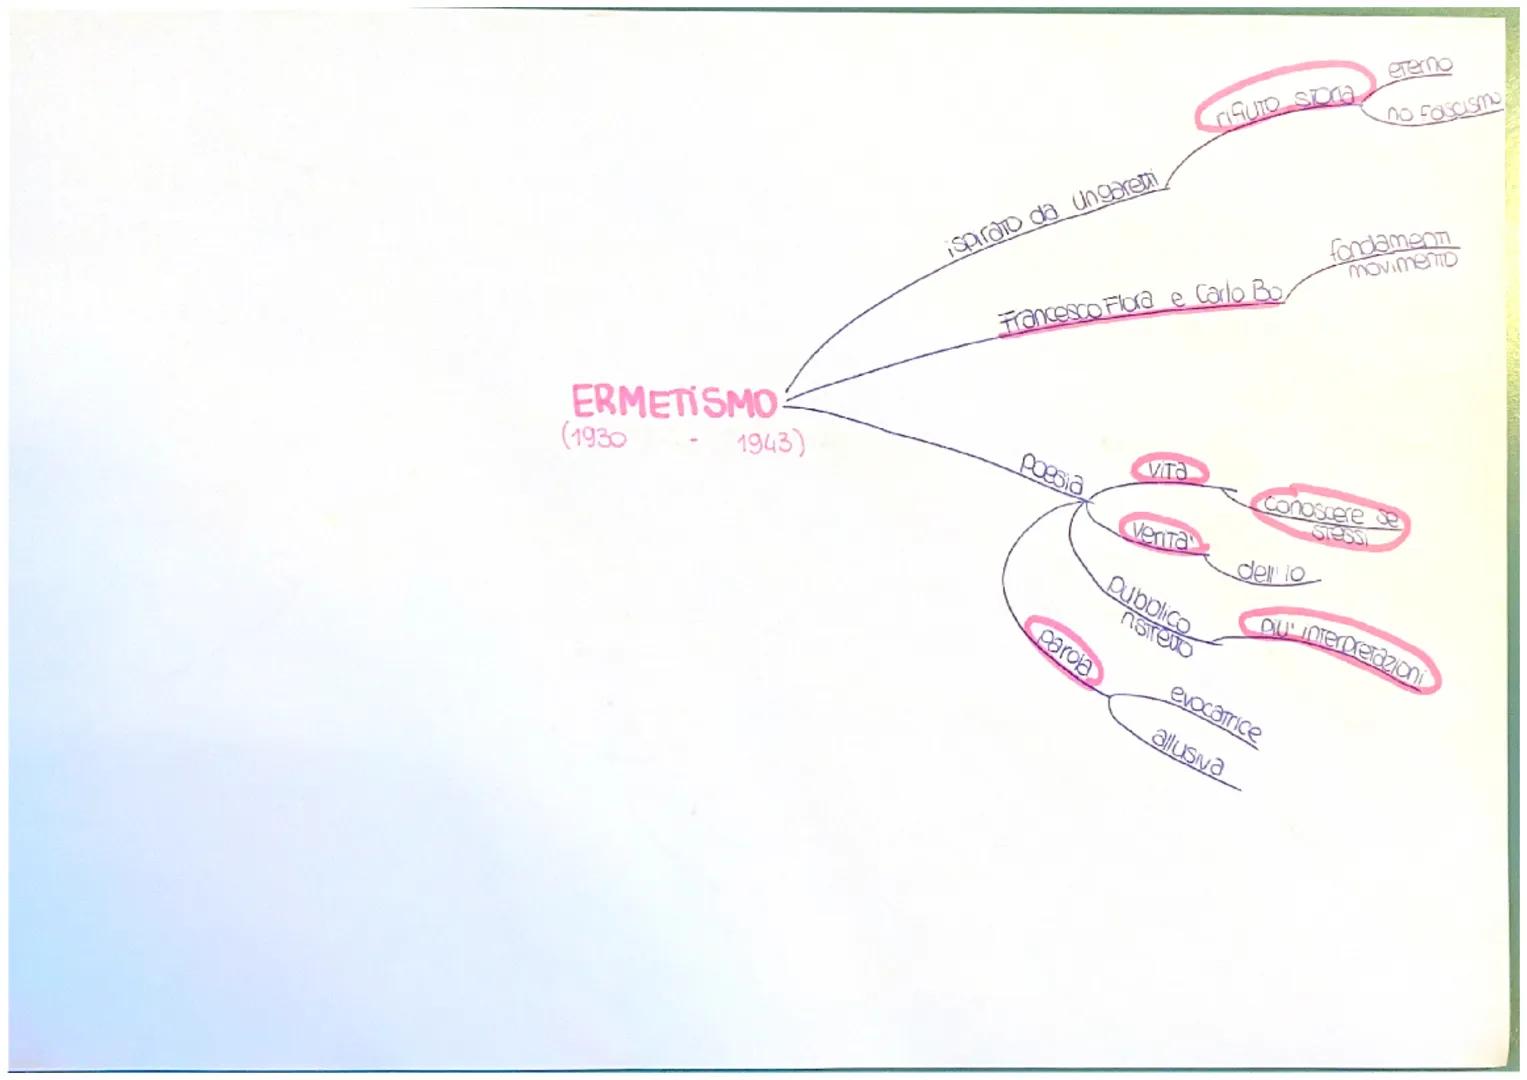 eterno
rifiuto storia
no fascismo
ispirato da Ungaretti
fondamenti
movimento
Francesco Flora e Carlo Bo
ERMETISMO
(1930 - 1943)
poesia
vita
conoscere se
stessi
verita'
dell'io
pubblico
ristretto
piu' interpretazioni
parola
evocatrice
allusiva